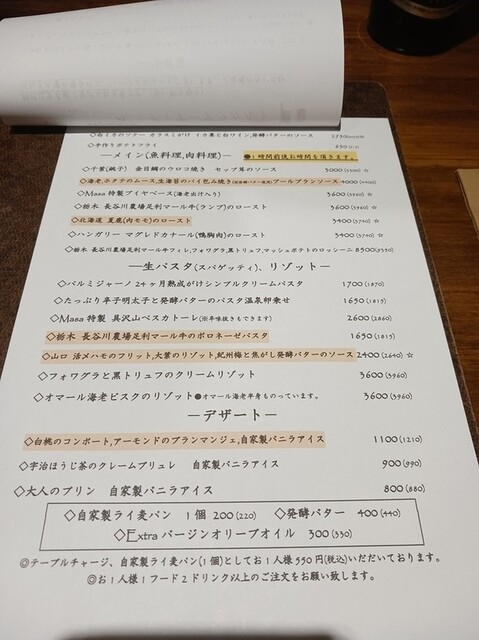 ◇白イカのソテー カラスミがけ イカ墨と白ワイン,発酵バターのソース
◇手作りポテトフライ
―メイン(魚料理,肉料理)― ●1時間前後お時間を頂きます。
◇千葉(銚子) 金目鯛のウロコ焼き セップ茸のソース 3000(3300) ☆
◇海老,ホタテのムース,生海苔のパイ包み焼き ブールブランソース
◇Masa 特製ブイヤベース(海老出汁入り) 3600(3960) ☆
◇栃木 長谷川農場足利マール牛(ランプ)のロースト 3600(3960) ☆
◇北海道 夏鹿(内モモ)のロースト 3400(3740) ☆
◇ハンガリー マグレドカナール(鴨胸肉)のロースト 3400(3740) ☆
◇栃木 長谷川農場足利マール牛フィレ,フォワグラ,黒トリュフ,マッシュポテトのロッシーニ 8500(9350)
―生パスタ(スパゲッティ)、リゾット―
◇パルミジャーノ24ヶ月熟成がけシンプルクリームパスタ 1700(1870)
◇たっぷり辛子明太子と発酵バターのパスタ温泉卵乗せ 1650(1815)
◇Masa 特製 具沢山ペスカトーレ(※辛味抜きもできます) 2600(2860)
◇栃木 長谷川農場足利マール牛のボロネーゼパスタ 1650(1815)
◇山口 活メハモのフリット,大葉のリゾット,紀州梅と焦がし発酵バターのソース 2400(2640) ☆
◇フォワグラと黒トリュフのクリームリゾット 3600(3960)
◇オマール海老ビスクのリゾット●オマール海老半身ものっています。 3600(3960) ☆
―デザート―
◇白桃のコンポート,アーモンドのブランマンジェ,自家製バニラアイス 1100(1210)
◇宇治ほうじ茶のクレームブリュレ 自家製バニラアイス 900(990)
◇大人のプリン 自家製バニラアイス 800(880)
◇自家製ライ麦パン 1個 200(220) ◇発酵バター 400(440)
◇Extra バージンオリーブオイル 300(330)
◎テーブルチャージ、自家製ライ麦パン(1個)としてお1人様550円(税込)いただいております。
◎お1人様1フード2ドリンク以上のご注文をお願い致します。